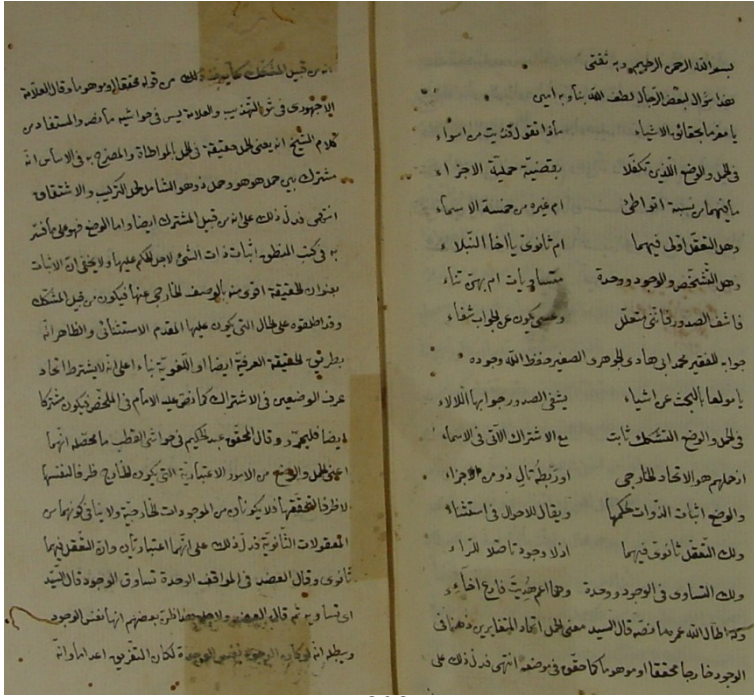 بسم الله الرحمن الرحيم وبه ثقتي
هذا سؤال لبعض الرجال لطف الله بنا وبه امين
يا مغرما بحقائق الاشياء ماذا تقول من اسواء
في الحمل والوضع اللذين تكفلا بقضية حملية الاجزاء
ما فيهما من نسبة اتواطئ ام غيره من خمسة الاسماء
وهل التعقل اولى فيهما ام ثانوى يا اخا النبلاء
وهل التشخص والوجود ووحدة متساويات ام بهن تناء
فاشف الصدور فانني متعلل وعسى يكون عن الجواب شفاء
جوابه للفقير محمد ابى هادى الجوهرى الصغير حفظ الله وجوده
يا مولعا بالبحث عن اشياء يشفى الصدور جوابها اللألاء
في الحمل والوضع التشكك ثابت مع الاشتراك الآتى فى الاسماء
اذ حملهم هو الاتحاد الخارجي او ربطه تال ذو من الاجزاء
والوضع اثبات الذوات لحكمها ويقال للاحوال فى استثناء
ولك التعقل ثانوى فيهما اذ لا وجود تاصلا للراء
ولك التساوى فى الوجود ووحدة وهى اعم حديث فارع اخاء
اطال الله عمره ما نصه قال السيد معنى الحمل اتحاد المتغايرين ذهنا فى
الوجود خارجا محققا او موهوما كما حقق فى موضعه انتهى فدل ذلك على
انه من قبيل المشكك كما يؤخذ ذلك من قوله محققا او موهوما وقال العلامة
الاجهورى فى التهذيب والعلامة يس فى حواشيه ما نصه والمستفاد من
كلام الشيخ انه يعنى الحمل حقيقة فى الحمل المواطاة والمصرح به فى الاساس انه
مشترك بين حمل هو هو وحمل ذو هو الشامل لحمل التركيب والاشتقاق
انتهى فدل ذلك على انه من قبيل المشترك ايضا واما الوضع فهو على ما فسر
به فى كتب المنطق اثبات ذات الشئ لاجل الحكم عليها ولا يخفى ان الاثبات
بعنوان الحقيقة اقوى منه بالوصف الخارجي عنها فيكون من قبيل المشكك
وقد اطلقوه على الحال التى يكون عليها المقدم الاستثنائى والظاهر انه
بطريق الحقيقة العرفية ايضا او اللغوية بناء على انه لا يشترط اتحاد
عرف الوضعين فى الاشتراك كما نص عليه الامام فى الملخص فيكون مشتركا
ايضا فليحرر وقال المحقق عبد الحكيم فى حواشى القطب ما محصله انهما
اعنى الحمل والوضع من الامور الاعتبارية التى يكون الخارج ظرفا لنفسها
لا ظرفا لتحققها فلا يكونان من الموجودات الخارجية ولا ينافى كونهما من
المعقولات الثانوية فدل ذلك على انهما اعتباريان وان التعقل فيهما
ثانوى وقال العضد فى المواقف الوحدة تساوق الوجود قال السيد
اى تساويه ثم قال العضد ولاجل مناظرة بعضهم انها نفس الوجود
ويبطله انه لو كان الوجود نفس الوحدة لكان التفريق اعداما وانه